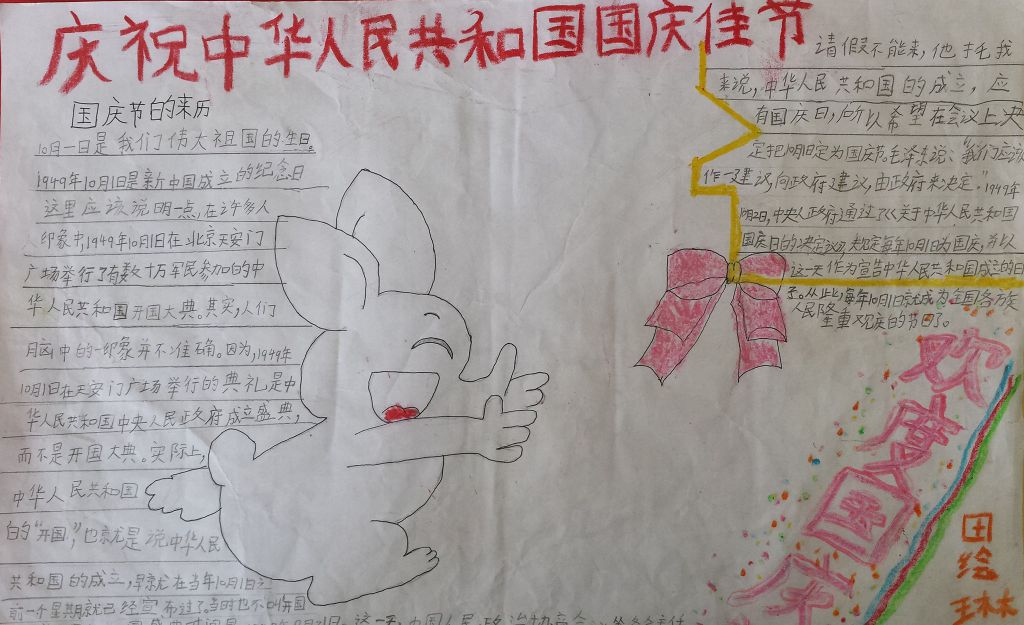 庆祝中华人民共和国国庆佳节
国庆节的来历
10月一日是我们伟大祖国的生日。
1949年10月1日是新中国成立的纪念日
这里应该说明一点,在许多人
印象中,1949年10月1日在北京天安门
广场举行了有数十万军民参加的中
华人民共和国开国大典。其实,人们
脑中的一印象并不准确。因为,1949年
10月1日在天安门广场举行的典礼是中
华人民共和国中央人民政府成立盛典,
而不是开国大典。实际上,
中华人民共和国
的“开国”,也就是说中华人民
共和国的成立,早就在当年10月1日之
前一个星期就已经宣布过了。当时也不叫开国
请假不能来,他托我
来说,中华人民共和国的成立,应
有国庆日,所以希望在会议上决
定把10月1日定为国庆节。毛泽东说、“我们应该
作一建议,向政府建议,由政府来决定。”1949年
中央人政府通过了《关于中华人民共和国
国庆日的决定》,规定每年10月1日为国庆,并以
这一天作为宣告中华人民共和国成立的日
子。从此,每年10月1日就成为全国各方族
人民隆重观庆的节日了。
欢度国庆
田绘
王林林